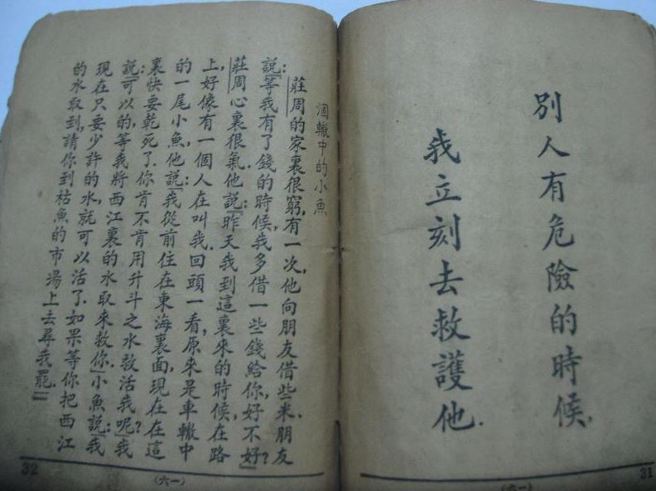 別人有危險的時候,
我立刻去救護他.
31
涸轍中的小魚
莊周的家裏很窮,有一次,他向朋友借些米.朋友
說:「等我有了錢的時候,我多借一些錢給你,好不好?」
莊周心裏很氣.他說:「昨天我到這裏來的時候,在路
上,好像有一個人在叫我.回頭一看,原來是車轍中
的一尾小魚.他說:「我從前住在東海裏面,現在在這
裏快要乾死了.你肯不肯用升斗之水救活我呢?」我
說:「可以的,等我將西江裏的水取來救你.」小魚說:「我
現在只要少許的水,就可以活了.如果等你把西江
的水取到,請你到枯魚的市場上去尋我罷.」
(六一)
32